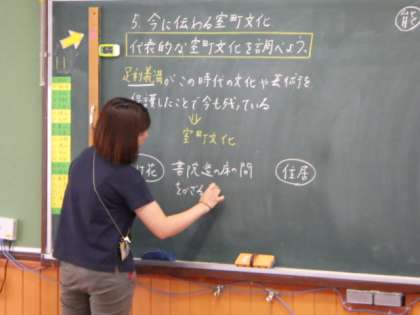 5. 今に伝わる室町文化
代表的な室町文化を調べよう。
足利義満がこの時代の文化や芸術を
保護したことで今も残っている
↓
室町文化
花
書院造の床の間
をかざる
住居
能